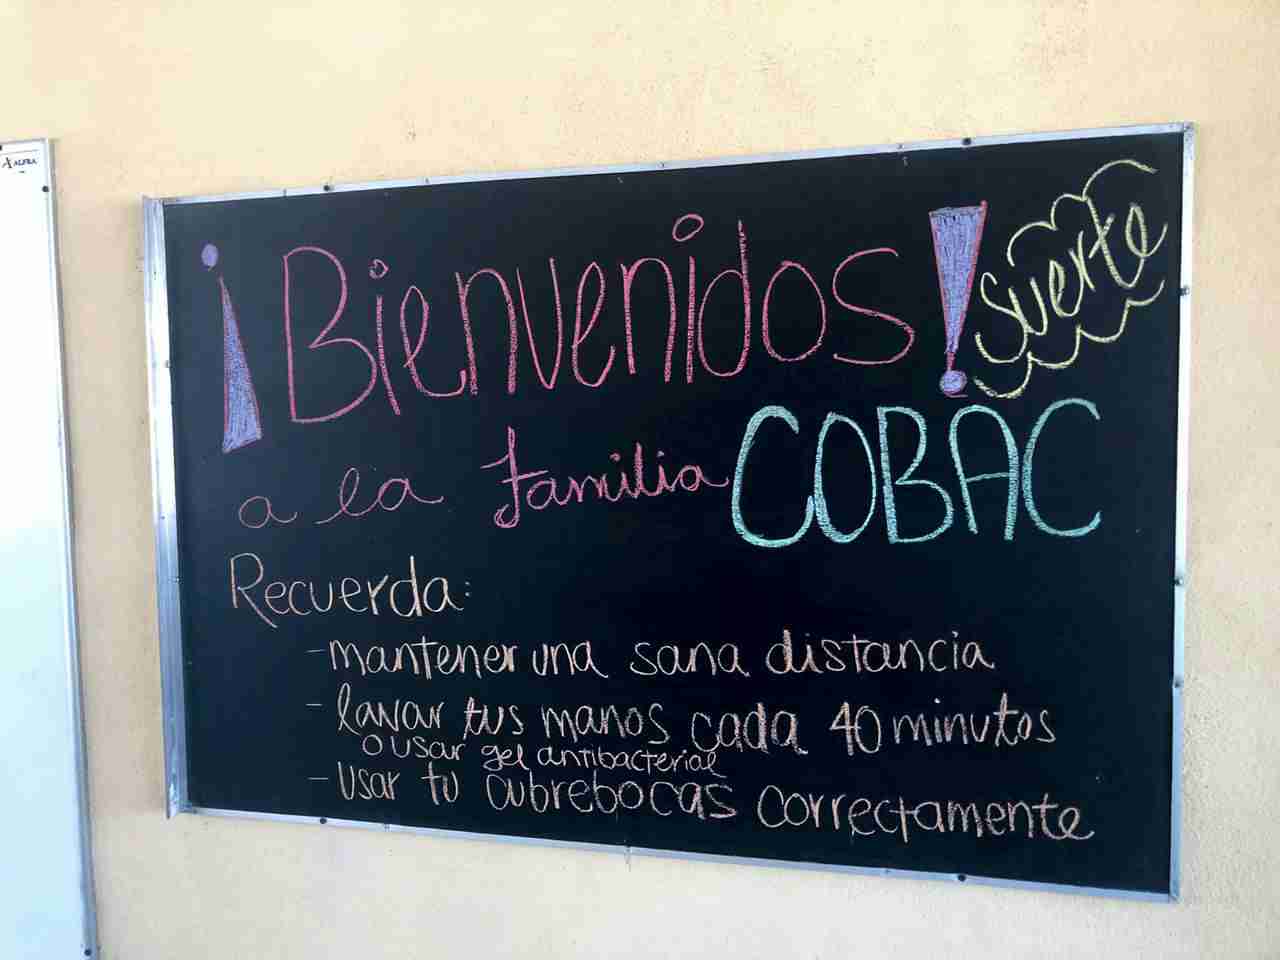 ALFRA
¡Bienvenidos!
Suerte
a la familia COBAC
Recuerda:
- mantener una sana distancia
- lavar tus manos cada 40 minutos
o usar gel antibacterial
- Usar tu cubrebocas correctamente